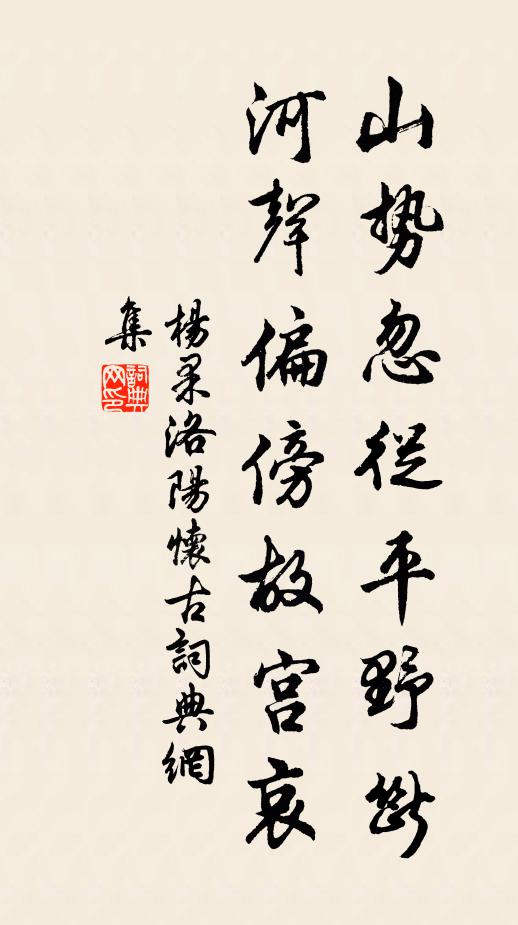 山勢忽從平野斷
河聲偏傍故宮哀
楊果洛陽懷古詞典網
集
詞典
网印